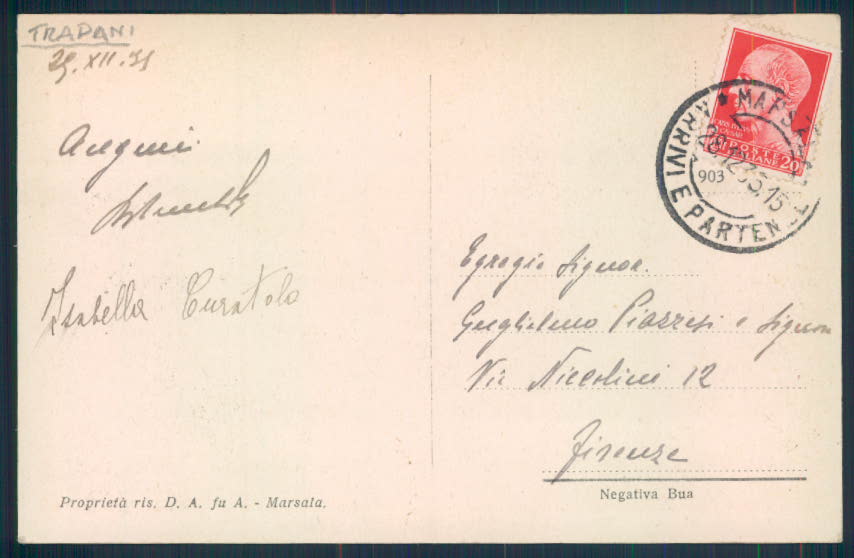 TRAPANI
29.XII.35
Auguri
Isabella Curatolo
MARSALA
ARRIVI E PARTEN
28.12.35.15
903
POSTE
ITALIANE 20
Egregio Signor.
Guglielmo Piazzesi e Signora
Via Niccolini 12
Firenze
Proprietà ris. D. A. fu A. - Marsala.
Negativa Bua